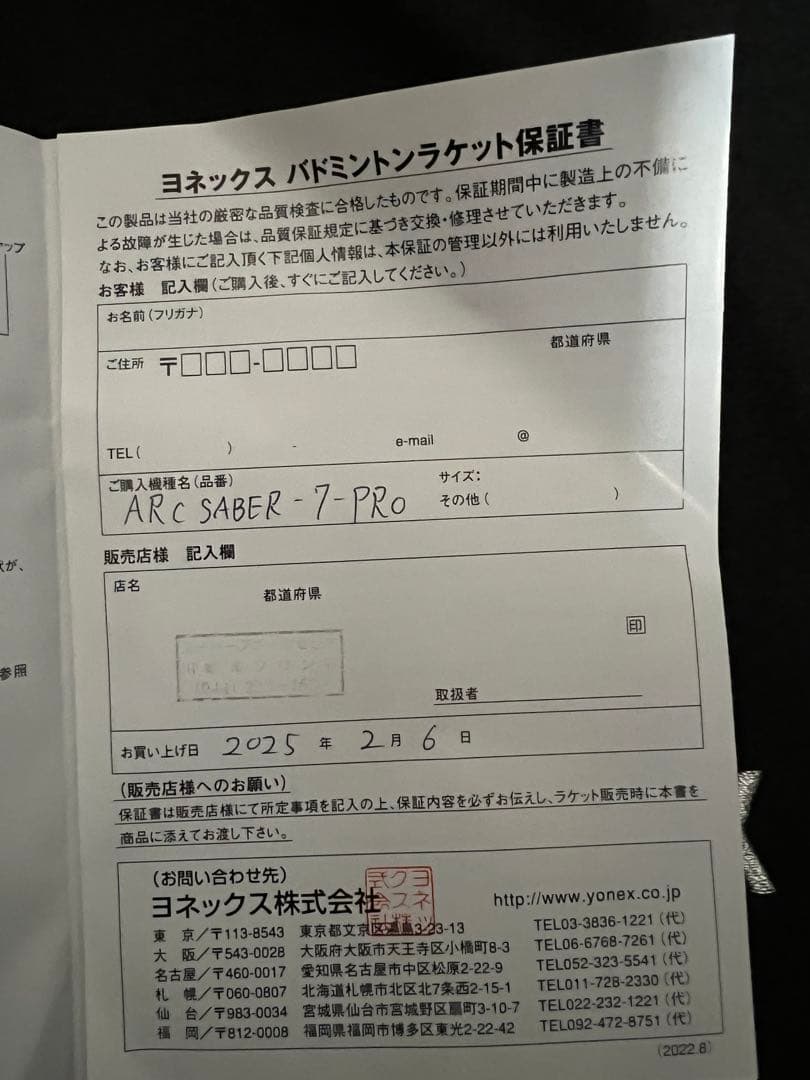 ヨネックス バドミントンラケット保証書
この製品は当社の厳密な品質検査に合格したものです。保証期間中に製造上の不備に
よる故障が生じた場合は、品質保証規定に基づき交換・修理させていただきます。
なお、お客様にご記入頂く下記個人情報は、本保証の管理以外には利用いたしません。
お客様 記入欄(ご購入後、すぐにご記入してください。)
お名前(フリガナ)
ご住所 〒□□□-□□□□ 都道府県
TEL( ) - e-mail @
ご購入機種名(品番) サイズ:
ARC SABER-7-PRO その他( )
販売店様 記入欄
店名 都道府県
印
取扱者
お買い上げ日 2025 年 2 月 6 日
(販売店様へのお願い)
保証書は販売店様にて所定事項を記入の上、保証内容を必ずお伝えし、ラケット販売時に本書を
商品に添えてお渡し下さい。
(お問い合わせ先)
ヨネックス株式会社 http://www.yonex.co.jp
東 京/〒113-8543 東京都文京区湯島3-23-13 TEL03-3836-1221(代)
大 阪/〒543-0028 大阪府大阪市天王寺区小橋町8-3 TEL06-6768-7261(代)
名古屋/〒460-0017 愛知県名古屋市中区松原2-22-9 TEL052-323-5541(代)
札 幌/〒060-0807 北海道札幌市北区北7条西2-15-1 TEL011-728-2330(代)
仙 台/〒983-0034 宮城県仙台市宮城野区扇町3-10-7 TEL022-232-1221(代)
福 岡/〒812-0008 福岡県福岡市博多区東光2-22-42 TEL092-472-8751(代)
(2022.8)
アップ
状が、
参照